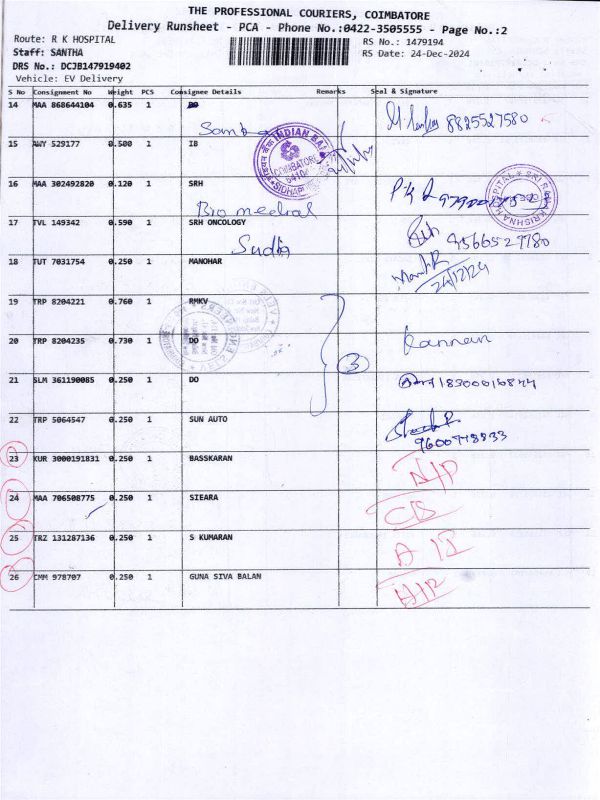 THE PROFESSIONAL COURIERS, COIMBATORE
Delivery Runsheet - PCA - Phone No.:0422-3505555 - Page No.:2
Route: R K HOSPITAL
RS No.: 1479194
Staff: SANTHA
RS Date: 24-Dec-2024
DRS No.: DCJB147919402
Vehicle: EV Delivery
S No Consignment No Weight PCS Consignee Details Remarks Seal & Signature
14 MAA 868644104 0.635 1 DO
8825527580
15 AWY 529177 0.500 1 IB
INDIAN BANK
COIMBATORE
16 MAA 302492820 0.120 1 SRH
Bio medical
SRI RAMA KRISHNA HOSPITAL
17 TVL 149342 0.590 1 SRH ONCOLOGY
Sudha
9566529780
18 TUT 7031754 0.250 1 MANOHAR
24/12/24
19 TRP 8204221 0.760 1 RMKV
20 TRP 8204235 0.730 1 DO
3
Kannan
21 SLM 361190085 0.250 1 DO
22 TRP 5064547 0.250 1 SUN AUTO
23 KUR 3000191831 0.250 1 BASSKARAN
24 MAA 706508775 0.250 1 SIEARA
CB
25 TRZ 131287136 0.250 1 S KUMARAN
26 CMM 978707 0.250 1 GUNA SIVA BALAN